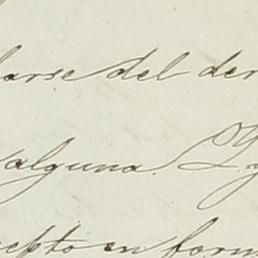 arse del der
alguna. Y
cepto en form